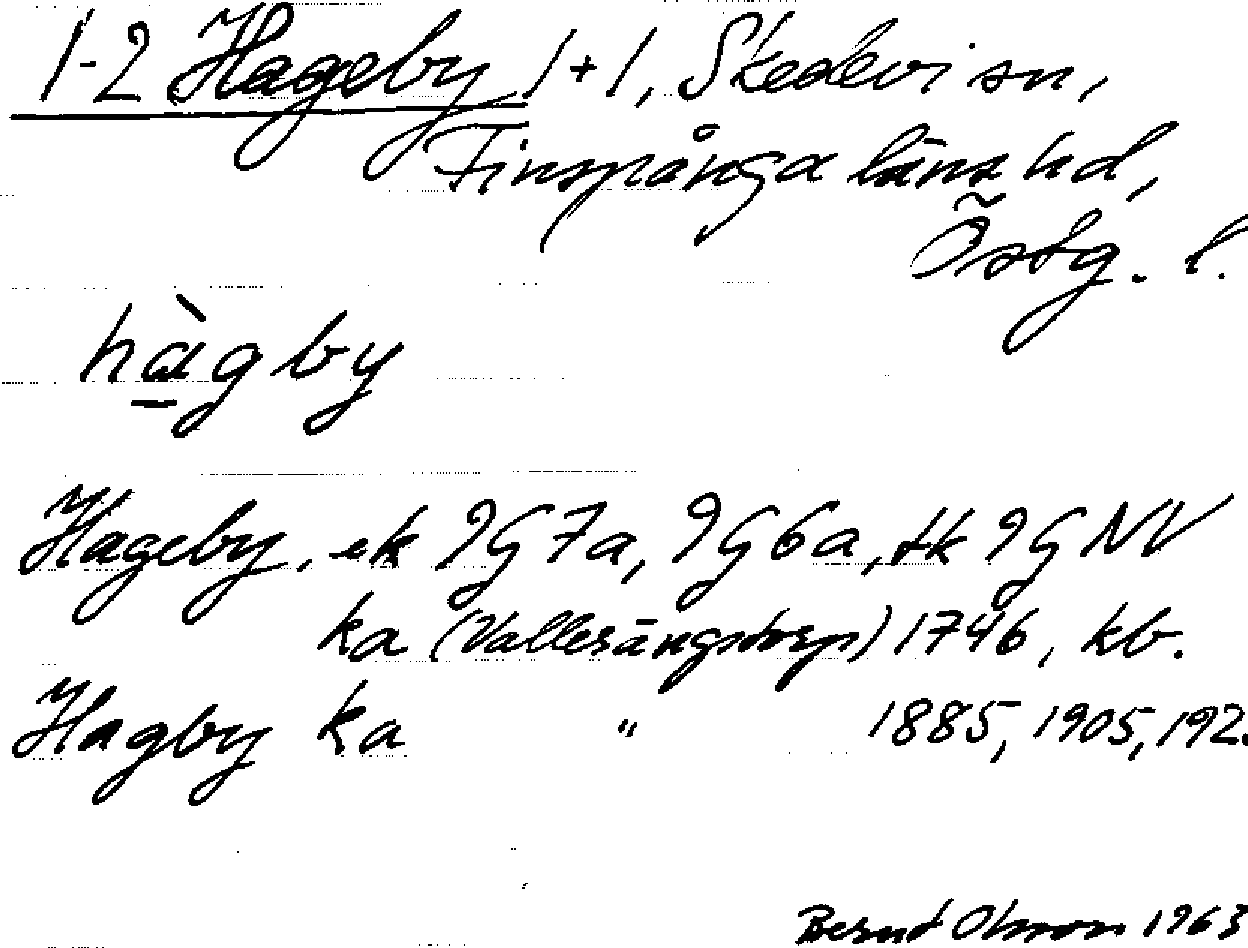 1-2 Hageby 1+1, Skedevi sn,
Finspånga läns hd,
Östg. l.
hàgby
Hageby, ek 9G7a, 9G6a, tk 9GNV
ka (Vallerängstorp) 1746, kb.
Hagby ka " 1885, 1905, 192
Bernt Olsson 1963